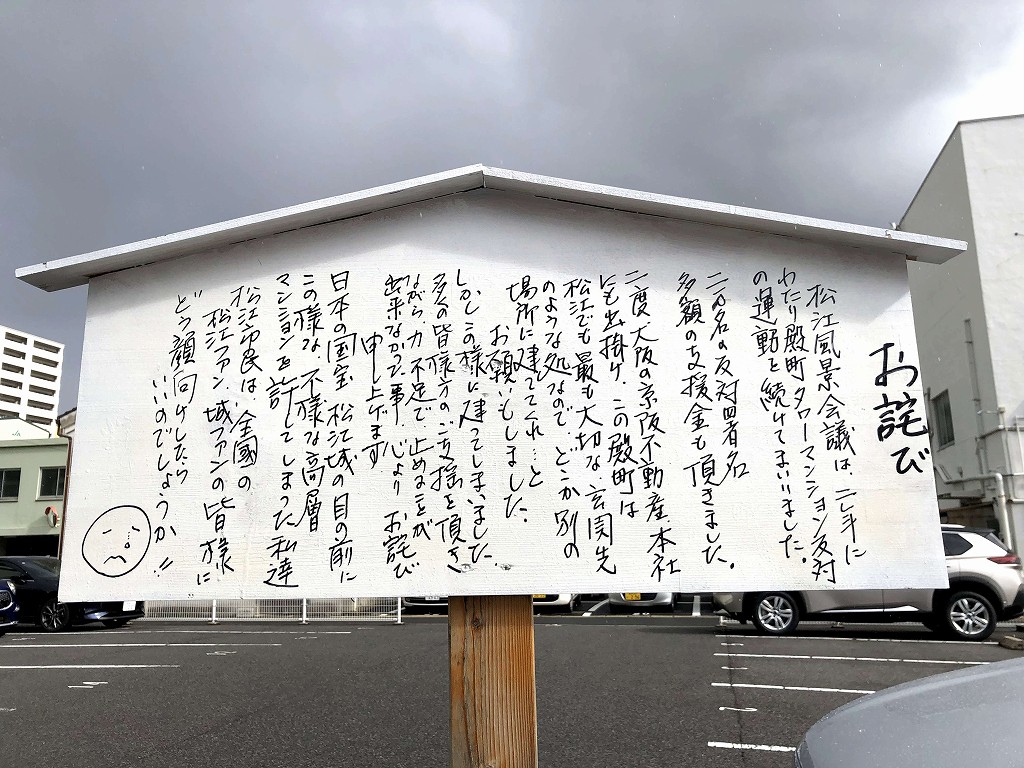 お詫び
松江風景会議は、二ヶ年に
わたり殿町タワーマンション反対
の運動を続けてまいりました。
二万名の反対署名
多額の支援金も頂きました。
二度大阪の京阪不動産本社
にも出掛け、この殿町は
松江でも最も大切な玄関先
のような処なので、どこか別の
場所に建ててくれ…と
お願いもしました。
しかしこの様に建ってしまいました。
多くの皆様方のご支援を頂き
ながら力不足で、止めることが
出来なかった事、心より お詫び
申し上げます
日本の国宝 松江城の目の前に
この様な、不様な高層
マンションを許してしまった私達
松江市民は、全國の
松江ファン、城ファンの皆様に
どう顔向けしたら
いいのでしょうか!!